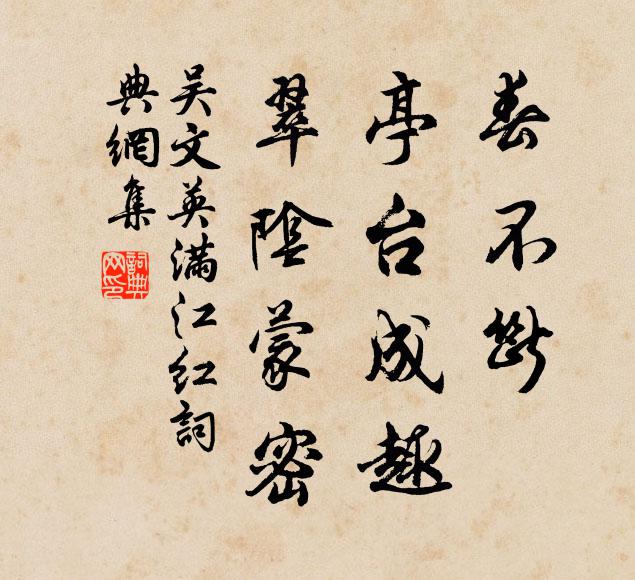 春不斷
亭台成趣
翠陰蒙密
吴文英满江红詞
典網集
詞典网印